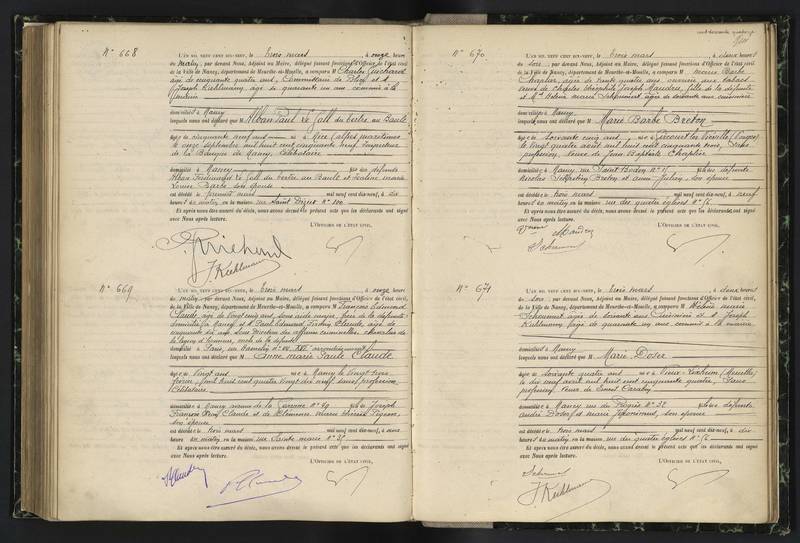 N° 668
L'an mil neuf cent dix-neuf, le trois mars à onze heures
du matin, par devant Nous, Adjoint au Maire, délégué faisant fonctions d'Officier de l'état civil
de la Ville de Nancy, département de Meurthe-et-Moselle, a comparu M Charles Guichard
âgé de cinquante ans, et M
Joseph Kuhlmann, âgé de quarante un ans commis à la
mairie
domiciliés à Nancy
lesquels nous ont déclaré que M Alban Paul Le Gall du Tertre au Baulé
âgé de cinquante neuf ans né à Nice (Alpes maritimes)
le onze septembre mil huit cent cinquante neuf
de la Banque de Nancy, Célibataire
domicilié à Nancy fils de défunts
Alban Ferdinand le Gall du Tertre au Baulé et
Louise Barbe son épouse
est décédé le premier mars mil neuf cent dix-neuf, à dix
heures du matin, en la maison rue Saint Dizier N° 100
Et après nous être assuré du décès, nous avons dressé le présent acte que les déclarants ont signé
avec Nous après lecture.
L'Officier de l'état civil,
J Kuhlmann
N° 669
L'an mil neuf cent dix-neuf, le trois mars à onze heures
du matin, par devant Nous, Adjoint au Maire, délégué faisant fonctions d'Officier de l'état civil,
de la Ville de Nancy, département de Meurthe-et-Moselle, a comparu M François Edmond
Claude, âgé de vingt cinq ans, sous aide major, frère de la défunte
domicilié à Nancy et M Paul Edmond Claude, âgé de
cinquante six ans, sous directeur des affaires criminelles, chevalier de
la légion d'honneur, oncle de la défunte
domicilié à Paris arrondissement
lesquels nous ont déclaré que M Anne Marie Paule Claude
âgée de vingt ans née à Nancy le vingt trois
février mil huit cent quatre vingt dix neuf, sans profession,
Célibataire
domiciliée à Nancy avenue de la Garenne N° 49 fille de Joseph
François René Claude et de Clémence Marie Thérèse
son épouse
est décédée le trois mars mil neuf cent dix-neuf, à
heures du matin, en la maison rue Sainte Marie
Et après nous être assuré du décès, nous avons dressé le présent acte que les déclarants ont signé
avec Nous après lecture.
L'Officier de l'état civil,
N° 670
L'an mil neuf cent dix-neuf, le trois mars à deux heures
du soir, par devant Nous, Adjoint au Maire, délégué faisant fonctions d'Officier de l'état civil
de la Ville de Nancy, département de Meurthe-et-Moselle, a comparu M Marie Barbe
Chaplier, âgée de trente quatre ans, ouvrière aux tabacs
veuve de Charles Théophile Joseph Maudru, fille de la défunte
et Mme Hélène Marie Schoumert âgée de soixante ans cuisinière
domiciliées à Nancy
lesquels nous ont déclaré que M Marie Barbe Breton
âgée de soixante cinq ans, née à (Vosges)
le vingt quatre août mil huit cent cinquante trois, sans
profession, veuve de Jean Baptiste Chaplier
domiciliée à Nancy rue Saint Bodon N° 15 fille de défunts
Nicolas Sébastien Breton et Anne Julien, son épouse
est décédée le trois mars mil neuf cent dix-neuf, à neuf
heures du matin, en la maison rue des quatre églises N° 56
Et après nous être assuré du décès, nous avons dressé le présent acte que les déclarants ont signé
avec Nous après lecture.
L'Officier de l'état civil,
Veuve Maudru
Schoumert
N° 671
L'an mil neuf cent dix-neuf, le trois mars à deux heures
du soir, par devant Nous, Adjoint au Maire, délégué faisant fonctions d'Officier de l'état civil,
de la Ville de Nancy, département de Meurthe-et-Moselle, a comparu M Hélène Marie
Schoumert âgée de soixante ans, cuisinière et M Joseph
Kuhlmann, âgé de quarante un ans commis à la mairie
domiciliés à Nancy
lesquels nous ont déclaré que M Marie Doser
âgée de soixante quatre ans née à Vieux-Lixheim (Meurthe)
le dix neuf avril mil huit cent cinquante quatre, sans
profession, veuve de Ernest
domiciliée à Nancy rue N° 32 fille de défunts
André Doser et Marie son épouse
est décédée le trois mars mil neuf cent dix-neuf, à dix
heures du matin, en la maison rue des quatre églises N° 56
Et après nous être assuré du décès, nous avons dressé le présent acte que les déclarants ont signé
avec Nous après lecture.
L'Officier de l'état civil,
Schoumert
J Kuhlmann